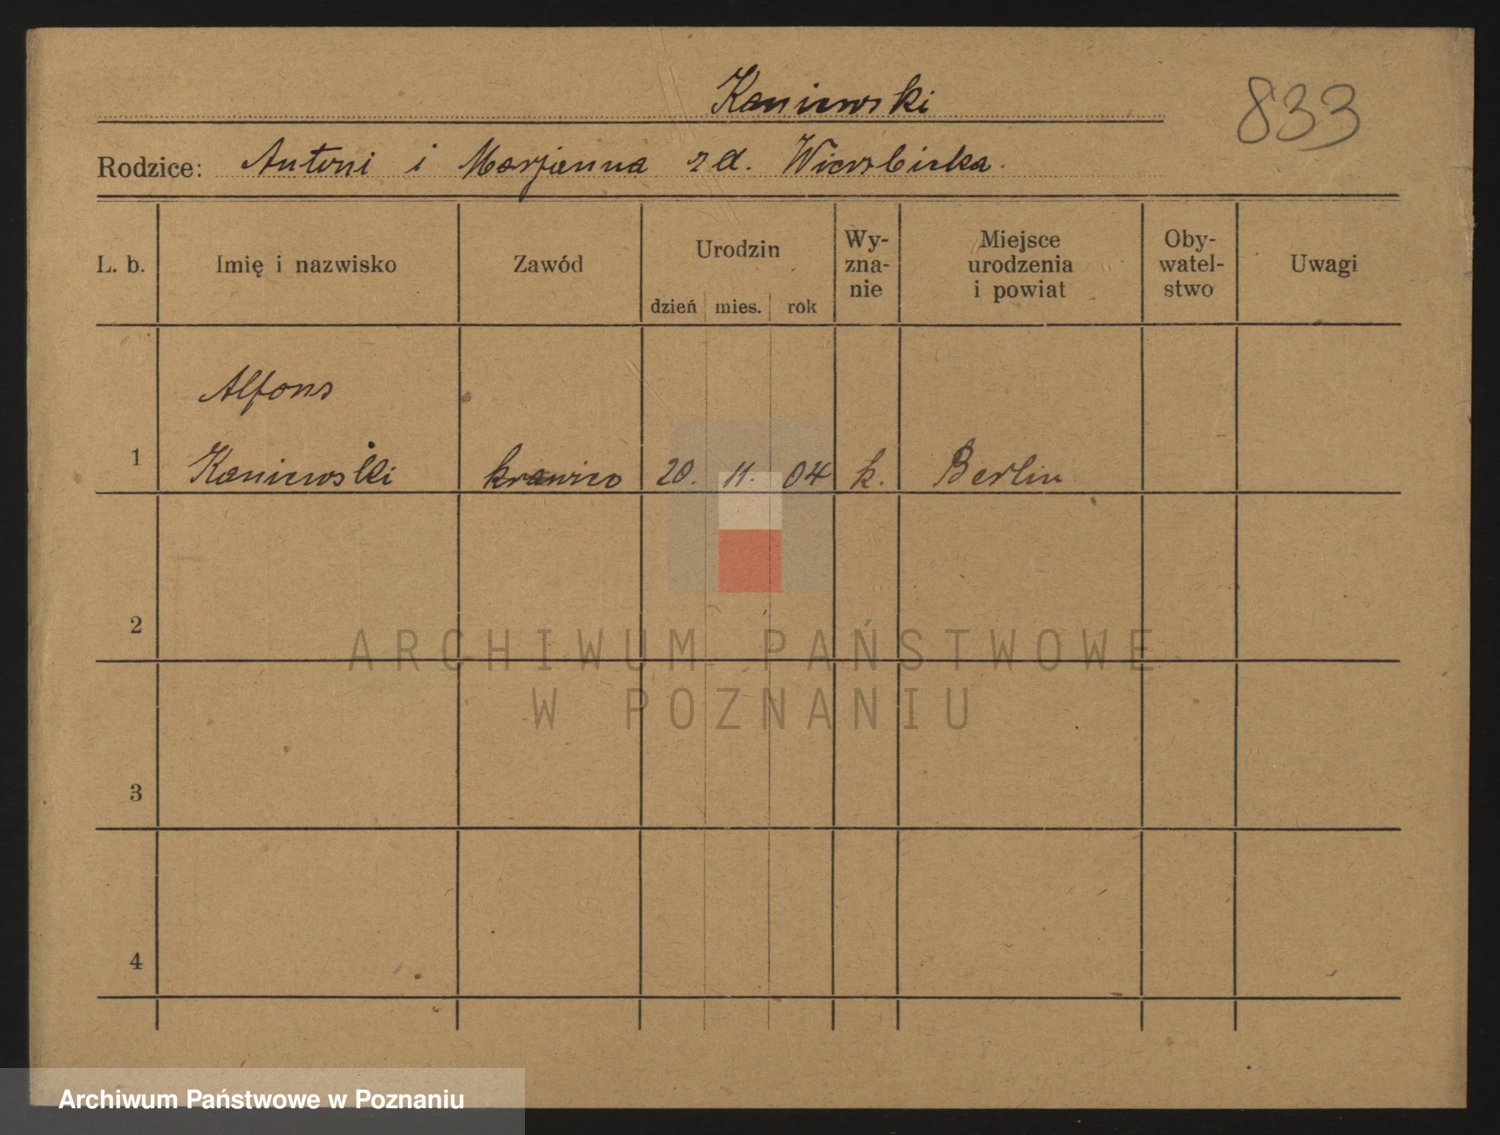 Kaniewski
833
Rodzice: Antoni i Marjanna zd. Wierzbicka.
L. b. Imię i nazwisko Zawód Urodzin dzień mies. rok Wy-zna-nie Miejsce urodzenia i powiat Oby-watel-stwo Uwagi
Alfons
1 Kaniewski krawiec 20. 11. 04 k. Berlin
2
ARCHIWUM PAŃSTWOWE
W POZNANIU
3
4
Archiwum Państwowe w Poznaniu